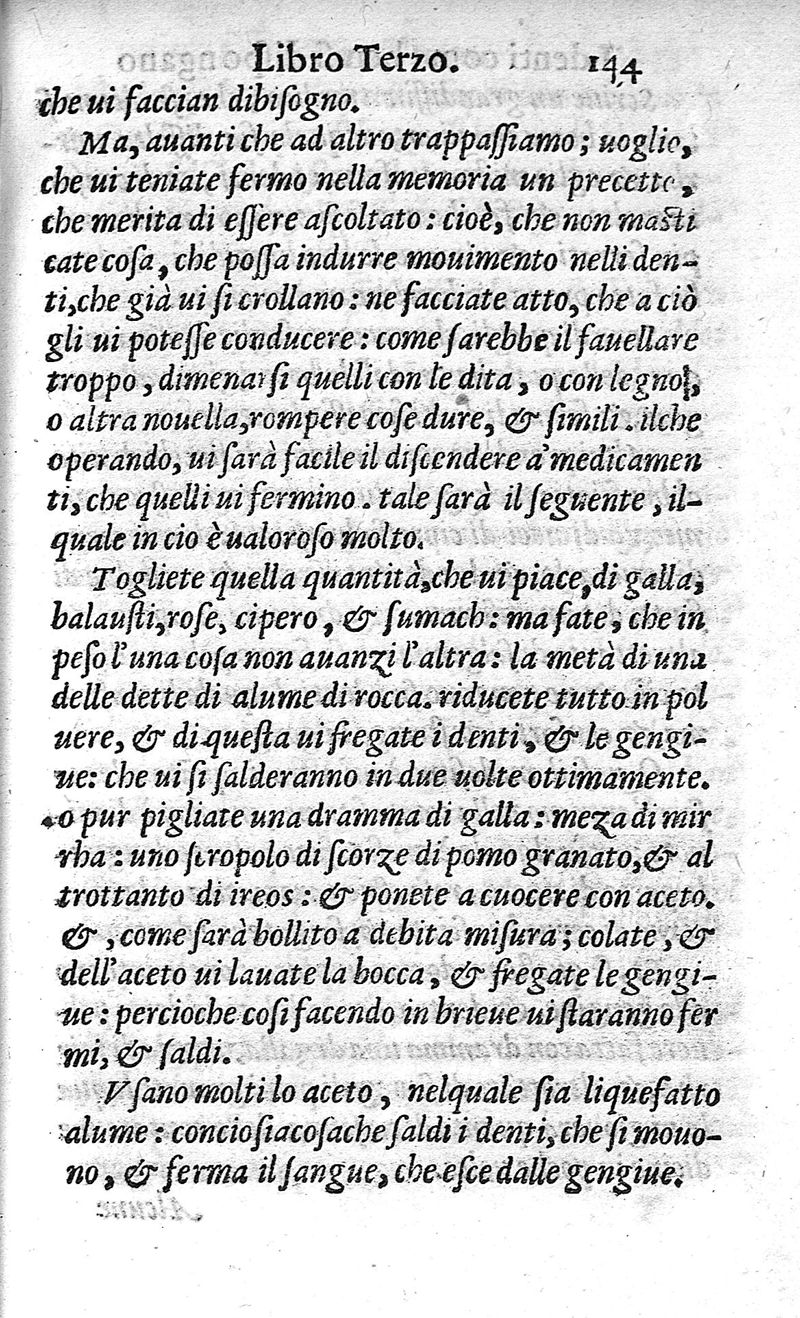 Libro Terzo. 144
che ui faccian dibiſogno.
Ma, auanti che ad altro trappaſſiamo; uoglio,
che ui teniate fermo nella memoria un precetto,
che merita di eſſere aſcoltato: cioè, che non maſti
cate coſa, che poſſa indurre mouimento nelli den-
ti, che già ui ſi crollano: ne facciate atto, che a ciò
gli ui poteſſe conducere: come ſarebbe il fauellare
troppo, dimenarſi quelli con le dita, o con legno,
o altra nouella, rompere coſe dure, & ſimili. ilche
operando, ui ſarà facile il diſcendere a' medicamen
ti, che quelli ui fermino. tale ſarà il ſeguente, il-
quale in cio è ualoroſo molto.
Togliete quella quantità, che ui piace, di galla,
balauſti, roſe, cipero, & ſumach: ma fate, che in
peſo l'una coſa non auanzi l'altra: la metà di una
delle dette di alume di rocca. riducete tutto in pol
uere, & di queſta ui fregate i denti, & le gengi-
ue: che ui ſi ſalderanno in due uolte ottimamente.
o pur pigliate una dramma di galla: meza di mir
rha: uno ſcropolo di ſcorze di pomo granato, & al
trottanto di ireos: & ponete a cuocere con aceto.
&, come ſarà bollito a debita miſura; colate, &
dell'aceto ui lauate la bocca, & fregate le gengi-
ue: percioche coſi facendo in brieue ui ſtaranno fer
mi, & ſaldi.
Vſano molti lo aceto, nelquale ſia liquefatto
alume: concioſiacoſache ſaldi i denti, che ſi mouo-
no, & ferma il ſangue, che eſce dalle gengiue.